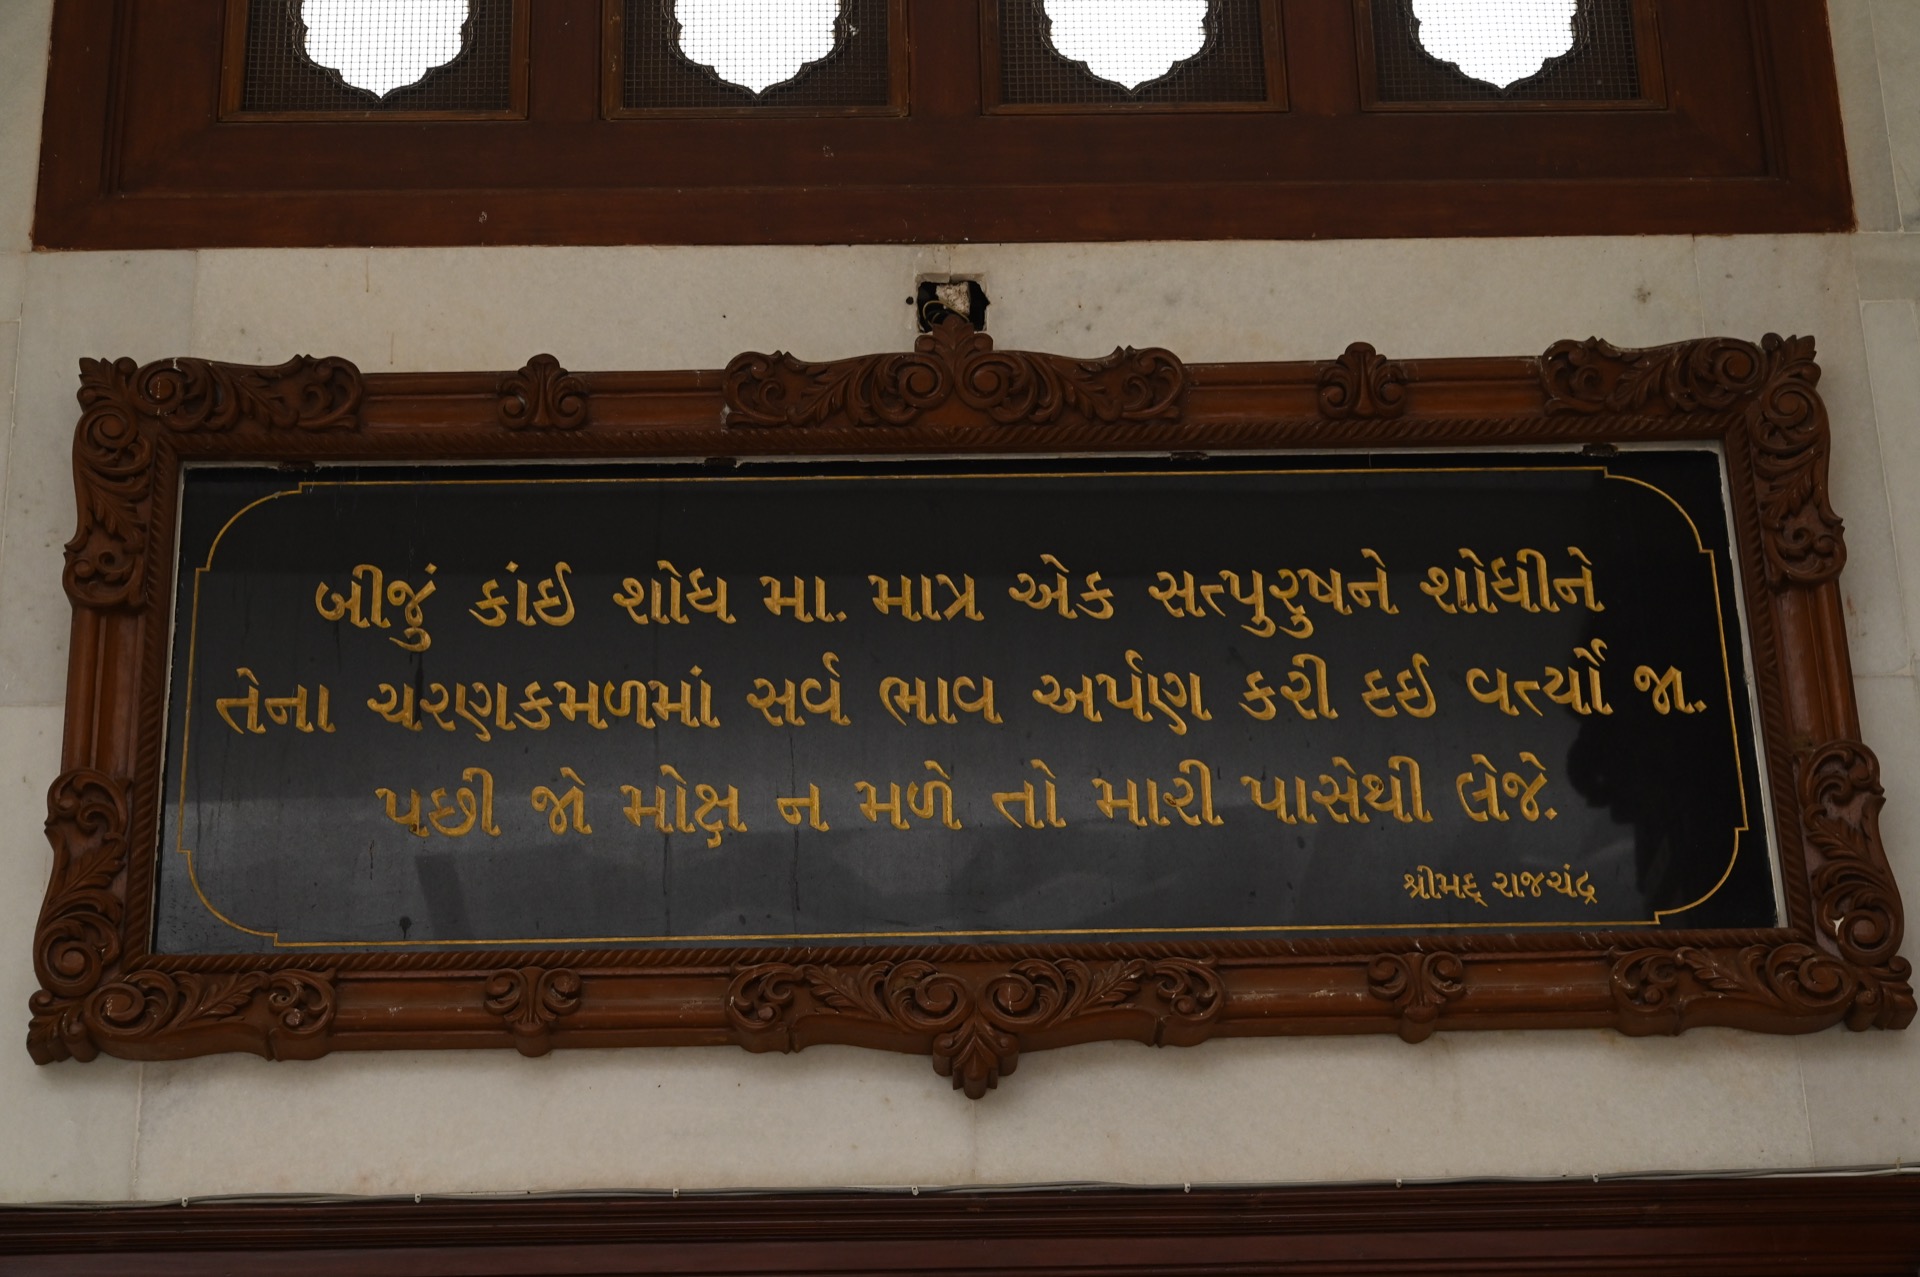 બીજું કાંઈ શોધ મા. માત્ર એક સત્પુરુષને શોધીને
તેના ચરણકમળમાં સર્વ ભાવ અર્પણ કરી દઈ વર્ત્યો જા.
પછી જો મોક્ષ ન મળે તો મારી પાસેથી લેજે.
શ્રીમદ્ રાજચંદ્ર